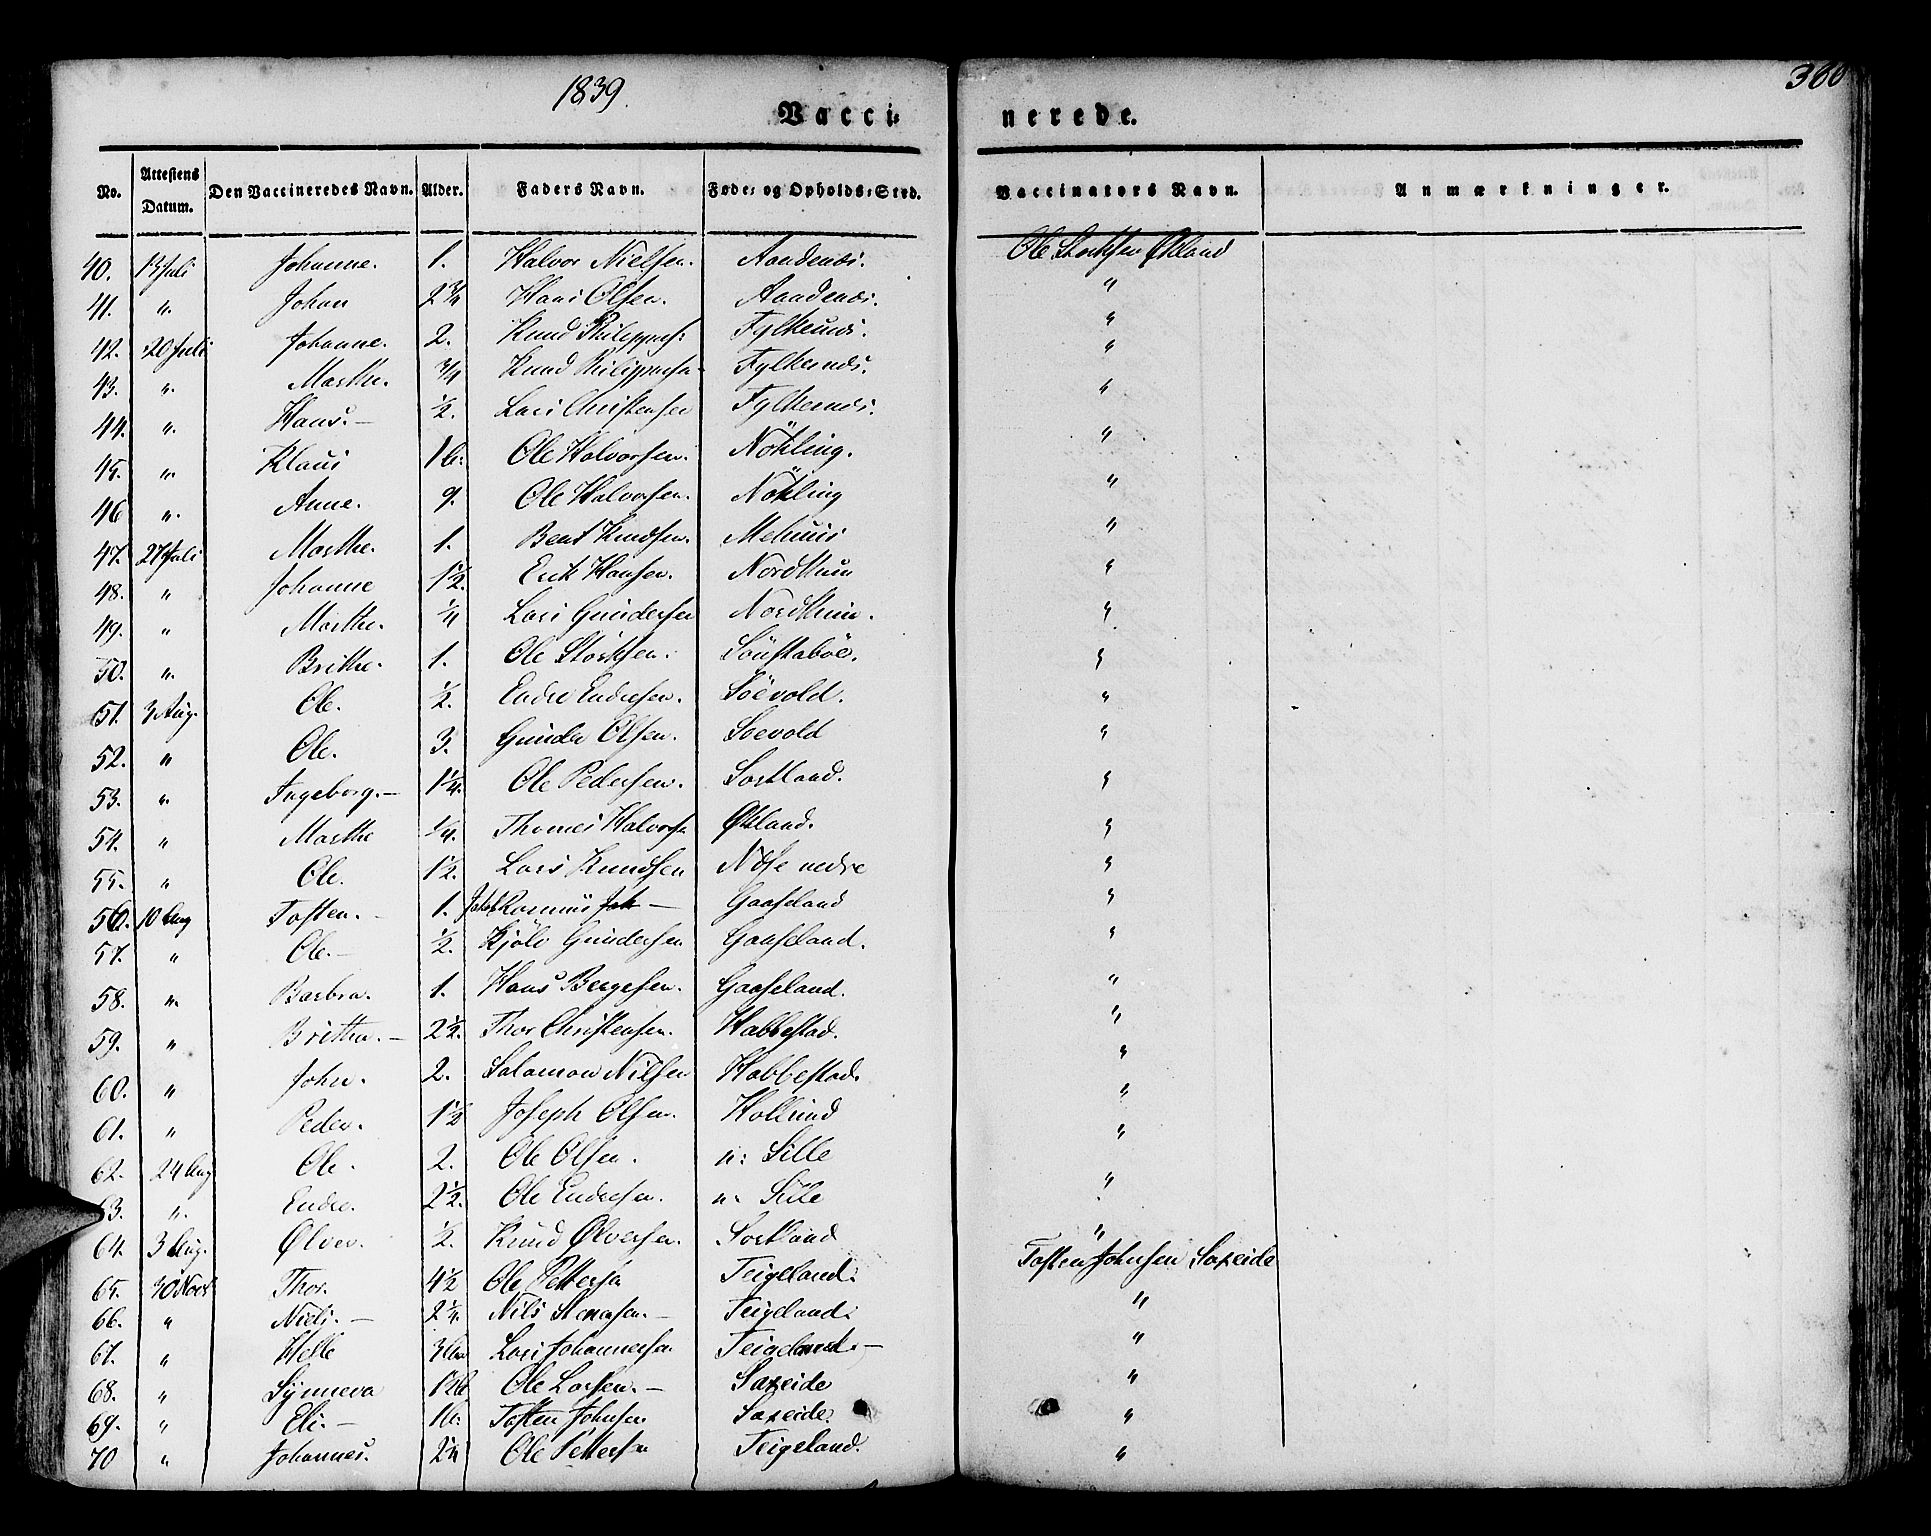 1839.
380
Vacci= nerede.
No. Attestens Datum. Den Vaccineredes Navn. Alder. Faders Navn. Føde= og Opholds=Sted. Vaccinators Navn. Anmærkninger.
40. 13 Juli Johanne. 1. Halvor Nielsen. Aandenæs. Ole Størksen Økland
41. " Johan 2 3/4 Hans Olsen. Aandenæs. "
42. 20 Juli Johanne. 2. Knud Philipps: Fylkesnæs. "
43. " Marthe. 3/4 Knud Philippsen Fylkesnæs. "
44. " Hans. — 1/2. Lars Christensen Fylkesnæs. "
45. " Klaus 16. Ole Halvorsen. Nökling. "
46 " Anne. 9. Ole Halvorsen. Nökling "
47. 27 Juli Marthe. 1. Bent Knudsen. Mehuus "
48. " Johanne 1 1/2. Erik Hansen. Nordhuus "
49. " Marthe. 1/4 Lars Gundersen Nordhuus. "
50. " Brithe. 1. Ole Størksen. Söustaböe. "
51. 3 Aug. Ole. 1/2. Endre Endresen. Söevold. "
52. " Ole. 3. Gunder Olsen. Soevold "
53. " Ingeborg. — 1 1/4. Ole Pedersen. Sortland. "
54. " Marthe 1/4. Thomes Halvors Økland. "
55. " Ole. 1 1/2. Lars Knudsen nedre "
56. 10 Aug Tosten. — 1. Rasmus — Gaaseland "
57. " Ole. — 1/2. Kjölv Gundersen Gaaseland. "
58. " Barbra. 1. Hans Bergesen. Gaaseland. "
59. " Britha. — 2 1/2. Thor Christensen. Habbestad. "
60. " John. 2. Salamon Nilsen Habbestad. "
61. " Peder. 1 1/2 Joseph Olsen. Hollund "
62. 24 Aug Ole. 2. Ole Olsen. n: Sille "
63. " Endre. 2 1/2. Ole Endresen. n: Sille "
64. 3 Aug. Ølver. 1/2. Knud Ølversen. Sortland "
65. 30 Novb Thor. 4 1/2 Ole Pettersen Teigeland. Tosten Johnsen Saxeide
66. " Niels. — 2 1/4. Nils — Teigeland. "
67. " Helle Lars Johannessen Teigeland. — "
68. " Synneva Ole Larsen. — Saxeide "
69. " Eli. — Tosten Johnsen Saxeide. "
70 " Johannes. 2 1/4 Ole Pettersen Teigeland. "